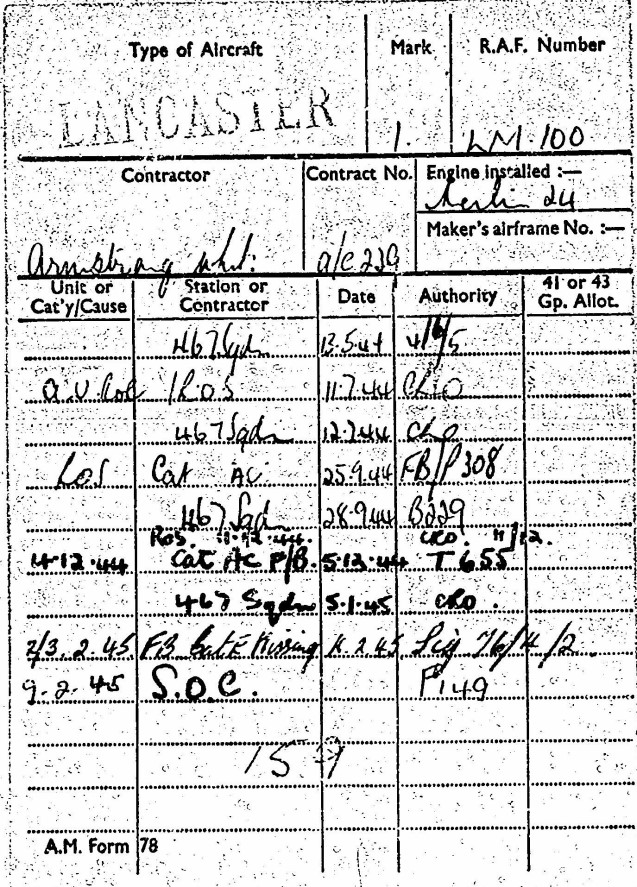 Type of Aircraft Mark R.A.F. Number
LANCASTER 1. LM.100
Contractor Contract No. Engine installed :—
Merlin 24
Maker's airframe No. :—
Armstrong Whit: a/c 239
Unit or Cat'y/Cause Station or Contractor Date Authority 41 or 43 Gp. Allot.
467 Sqdn 13.5.44 4/6/5
ROS 11.7.44 CRO
467 Sqdn 12.7.44 CRO
ROS Cat AC 25.9.44 FB/P 308
467 Sqdn 28.9.44 B229
Ros. 11.12.44. CRO. 11/12.
4.12.44 Cat AC F/B. 5.12.44 T 655
467 Sqdn 5.1.45 CRO.
2/3.2.45 FB Cat E Missing 4.2.45 Sig 76/4/2.
9.2.45 S.O.C. P149
A.M. Form 78